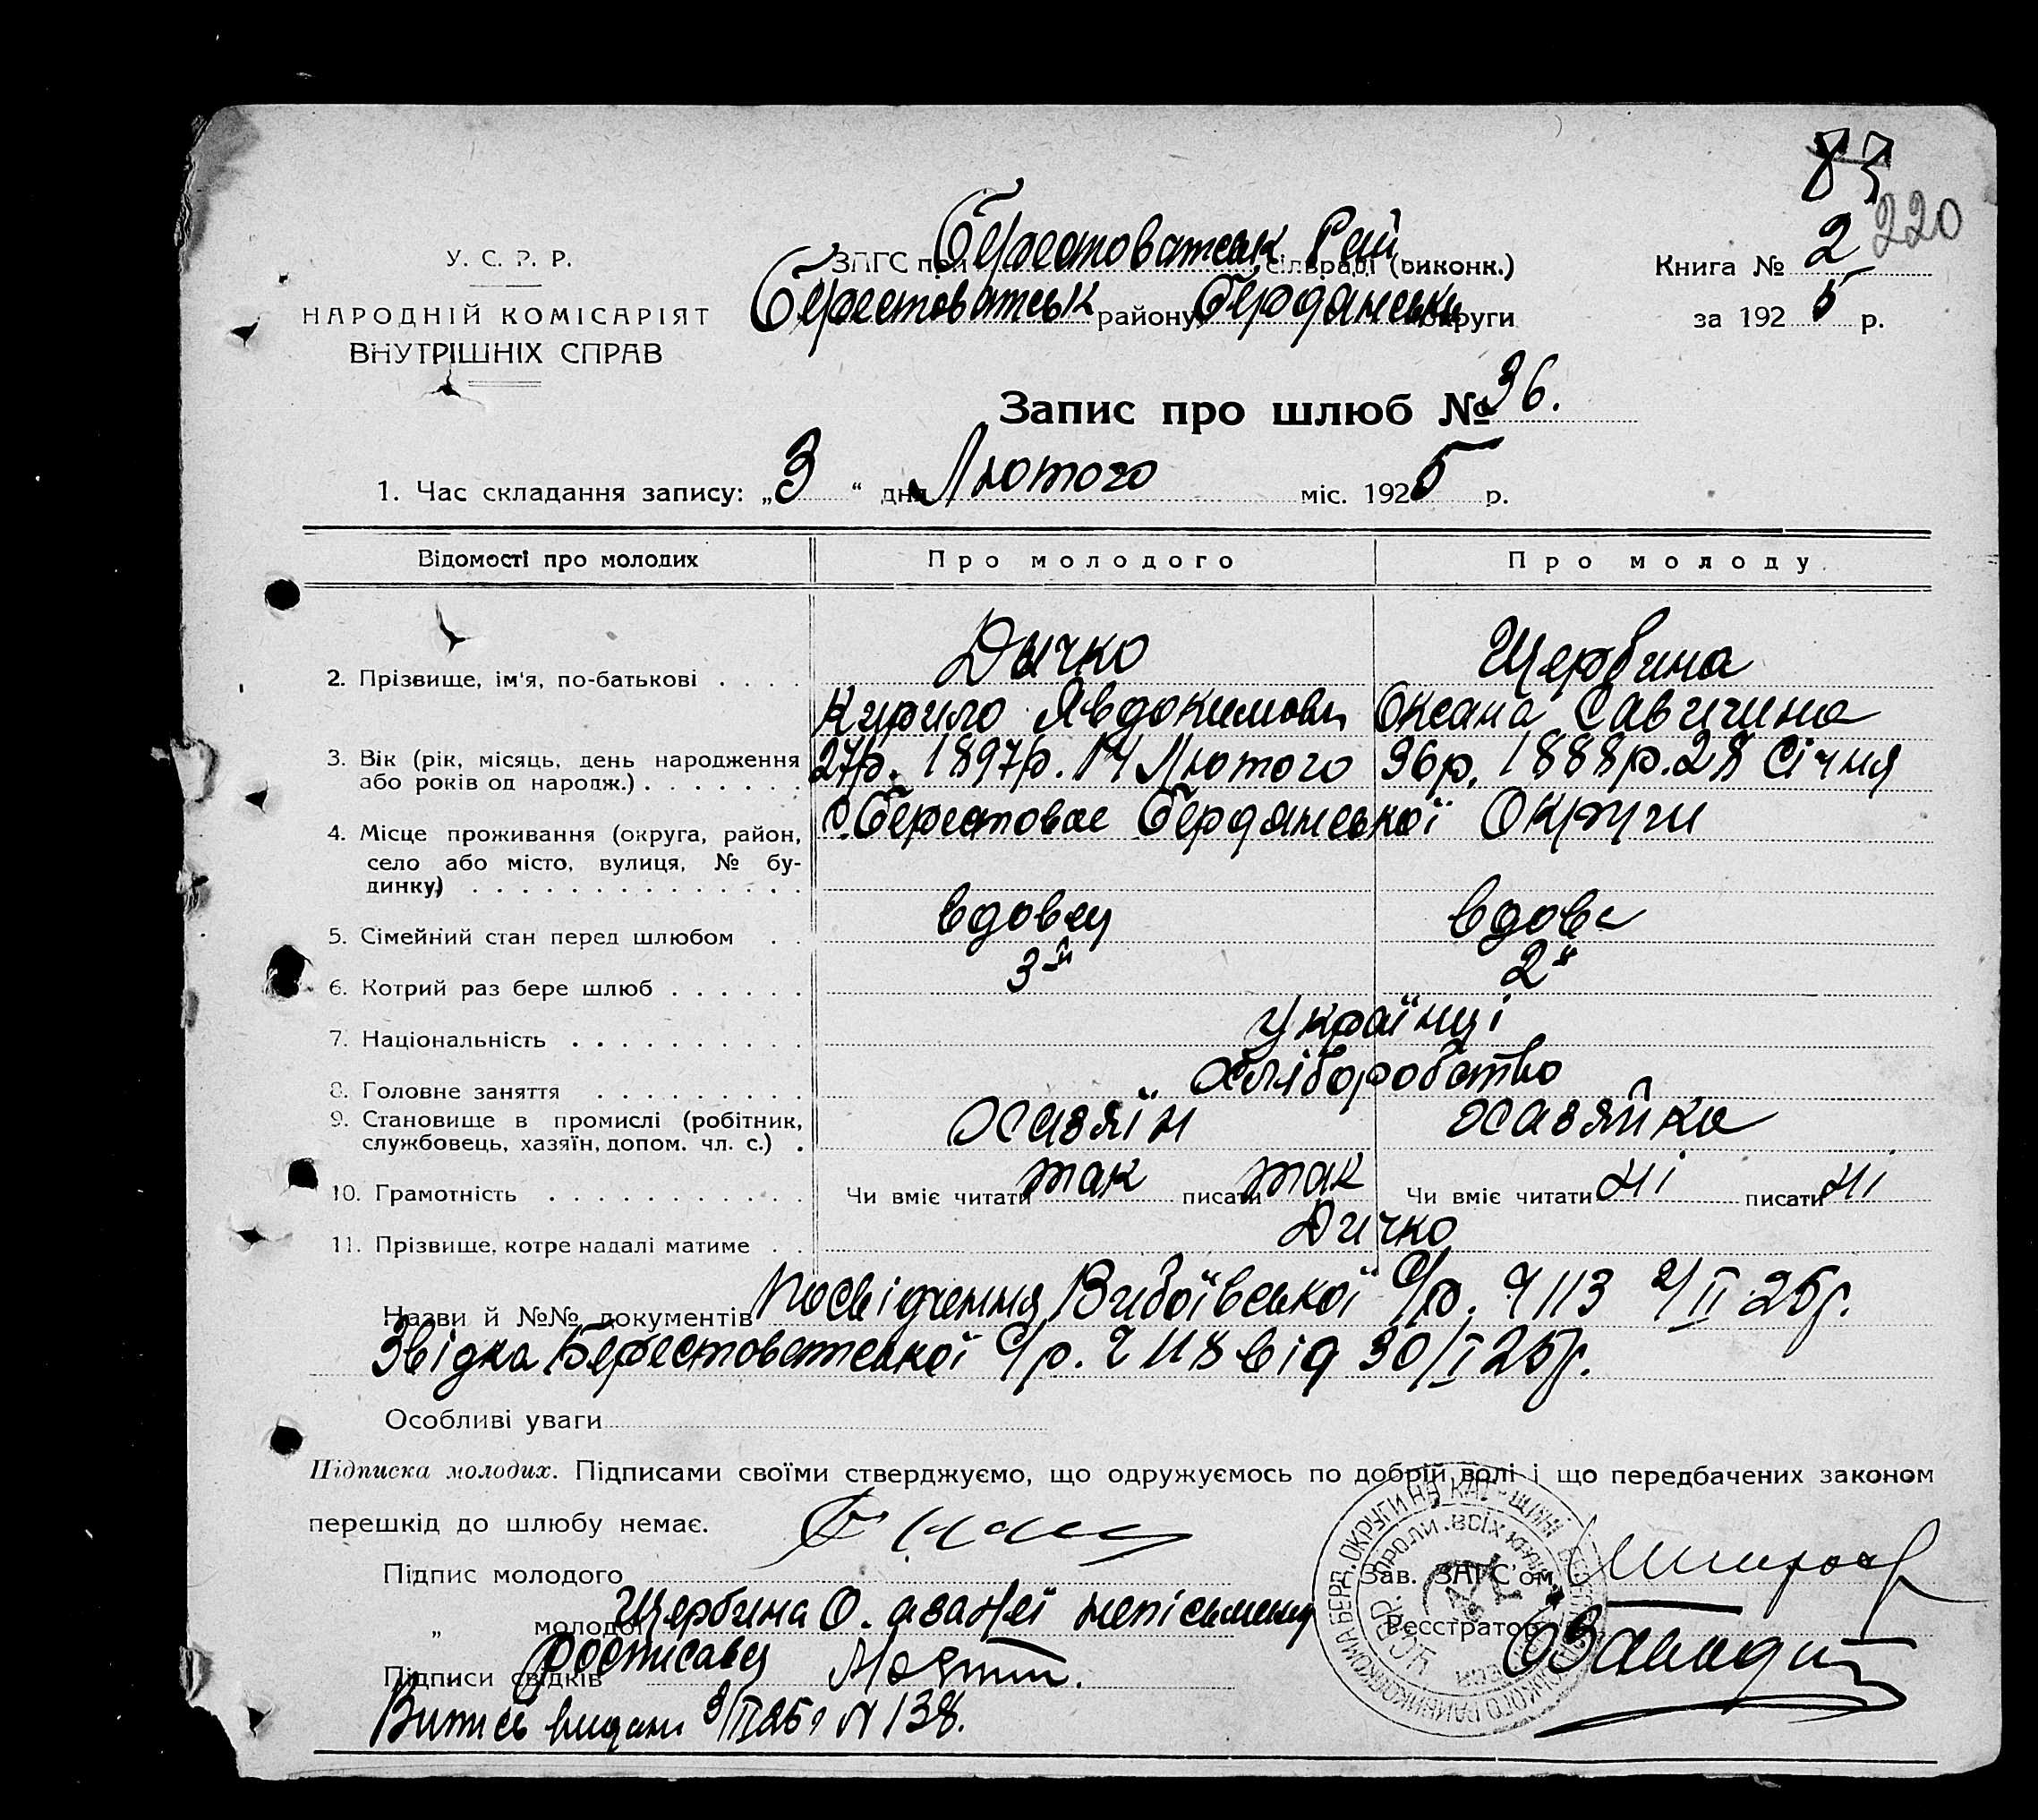 87
220
У. С. Р. Р.
НАРОДНІЙ КОМІСАРІЯТ
ВНУТРІШНІХ СПРАВ
ЗАГС при Берестоватськ Рай сільраді (виконк.)
Берестоватськ району Бердянськ округи
Книга № 2
за 1925 р.
Запис про шлюб № 36.
1. Час складання запису: „3“ дня Лютого міс. 1925 р.
Відомості про молодих Про молодого Про молоду
Дычко Щербина
2. Прізвище, ім'я, по-батькові . . . .
Кирило Явдокимови Оксана Савичина
3. Вік (рік, місяць, день народження 27р. 1897р. 14 Лютого 36р. 1888р. 28 Січня
або років од народж.) . . . . . . .
4. Місце проживання (округа, район, с. Берестовое Бердянської Округи
село або місто, вулиця, № бу-
динку) . . . . . . . . . . . . . .
5. Сімейний стан перед шлюбом . . вдовец вдова
6. Котрий раз бере шлюб . . . . . . 3й 2й
7. Національність . . . . . . . . . . Українці
8. Головне заняття . . . . . . . . . Хліборобство
9. Становище в промислі (робітник, Хазяїн Хазяйка
службовець, хазяїн, допом. чл. с.) .
10. Грамотність . . . . . . . . . . . Чи вміє читати так писати так Чи вміє читати ні писати ні
11. Прізвище, котре надалі матиме . . Дичко
Назви й №№ документів Посвідчення Вибоївської С/р. Ч 113 2/II 25р.
Звідка Берестоватської С/р. Ч 118 від 30/I 25р.
Особливі уваги
Підписка молодих. Підписами своїми стверджуємо, що одружуємось по добрій волі і що передбачених законом
перешкід до шлюбу немає.
Підпис молодого
Зав. ЗАГС'ом
„ молодої Щербина О. а за неї
Реєстратор
Підписи свідків
Випись видана N 138.